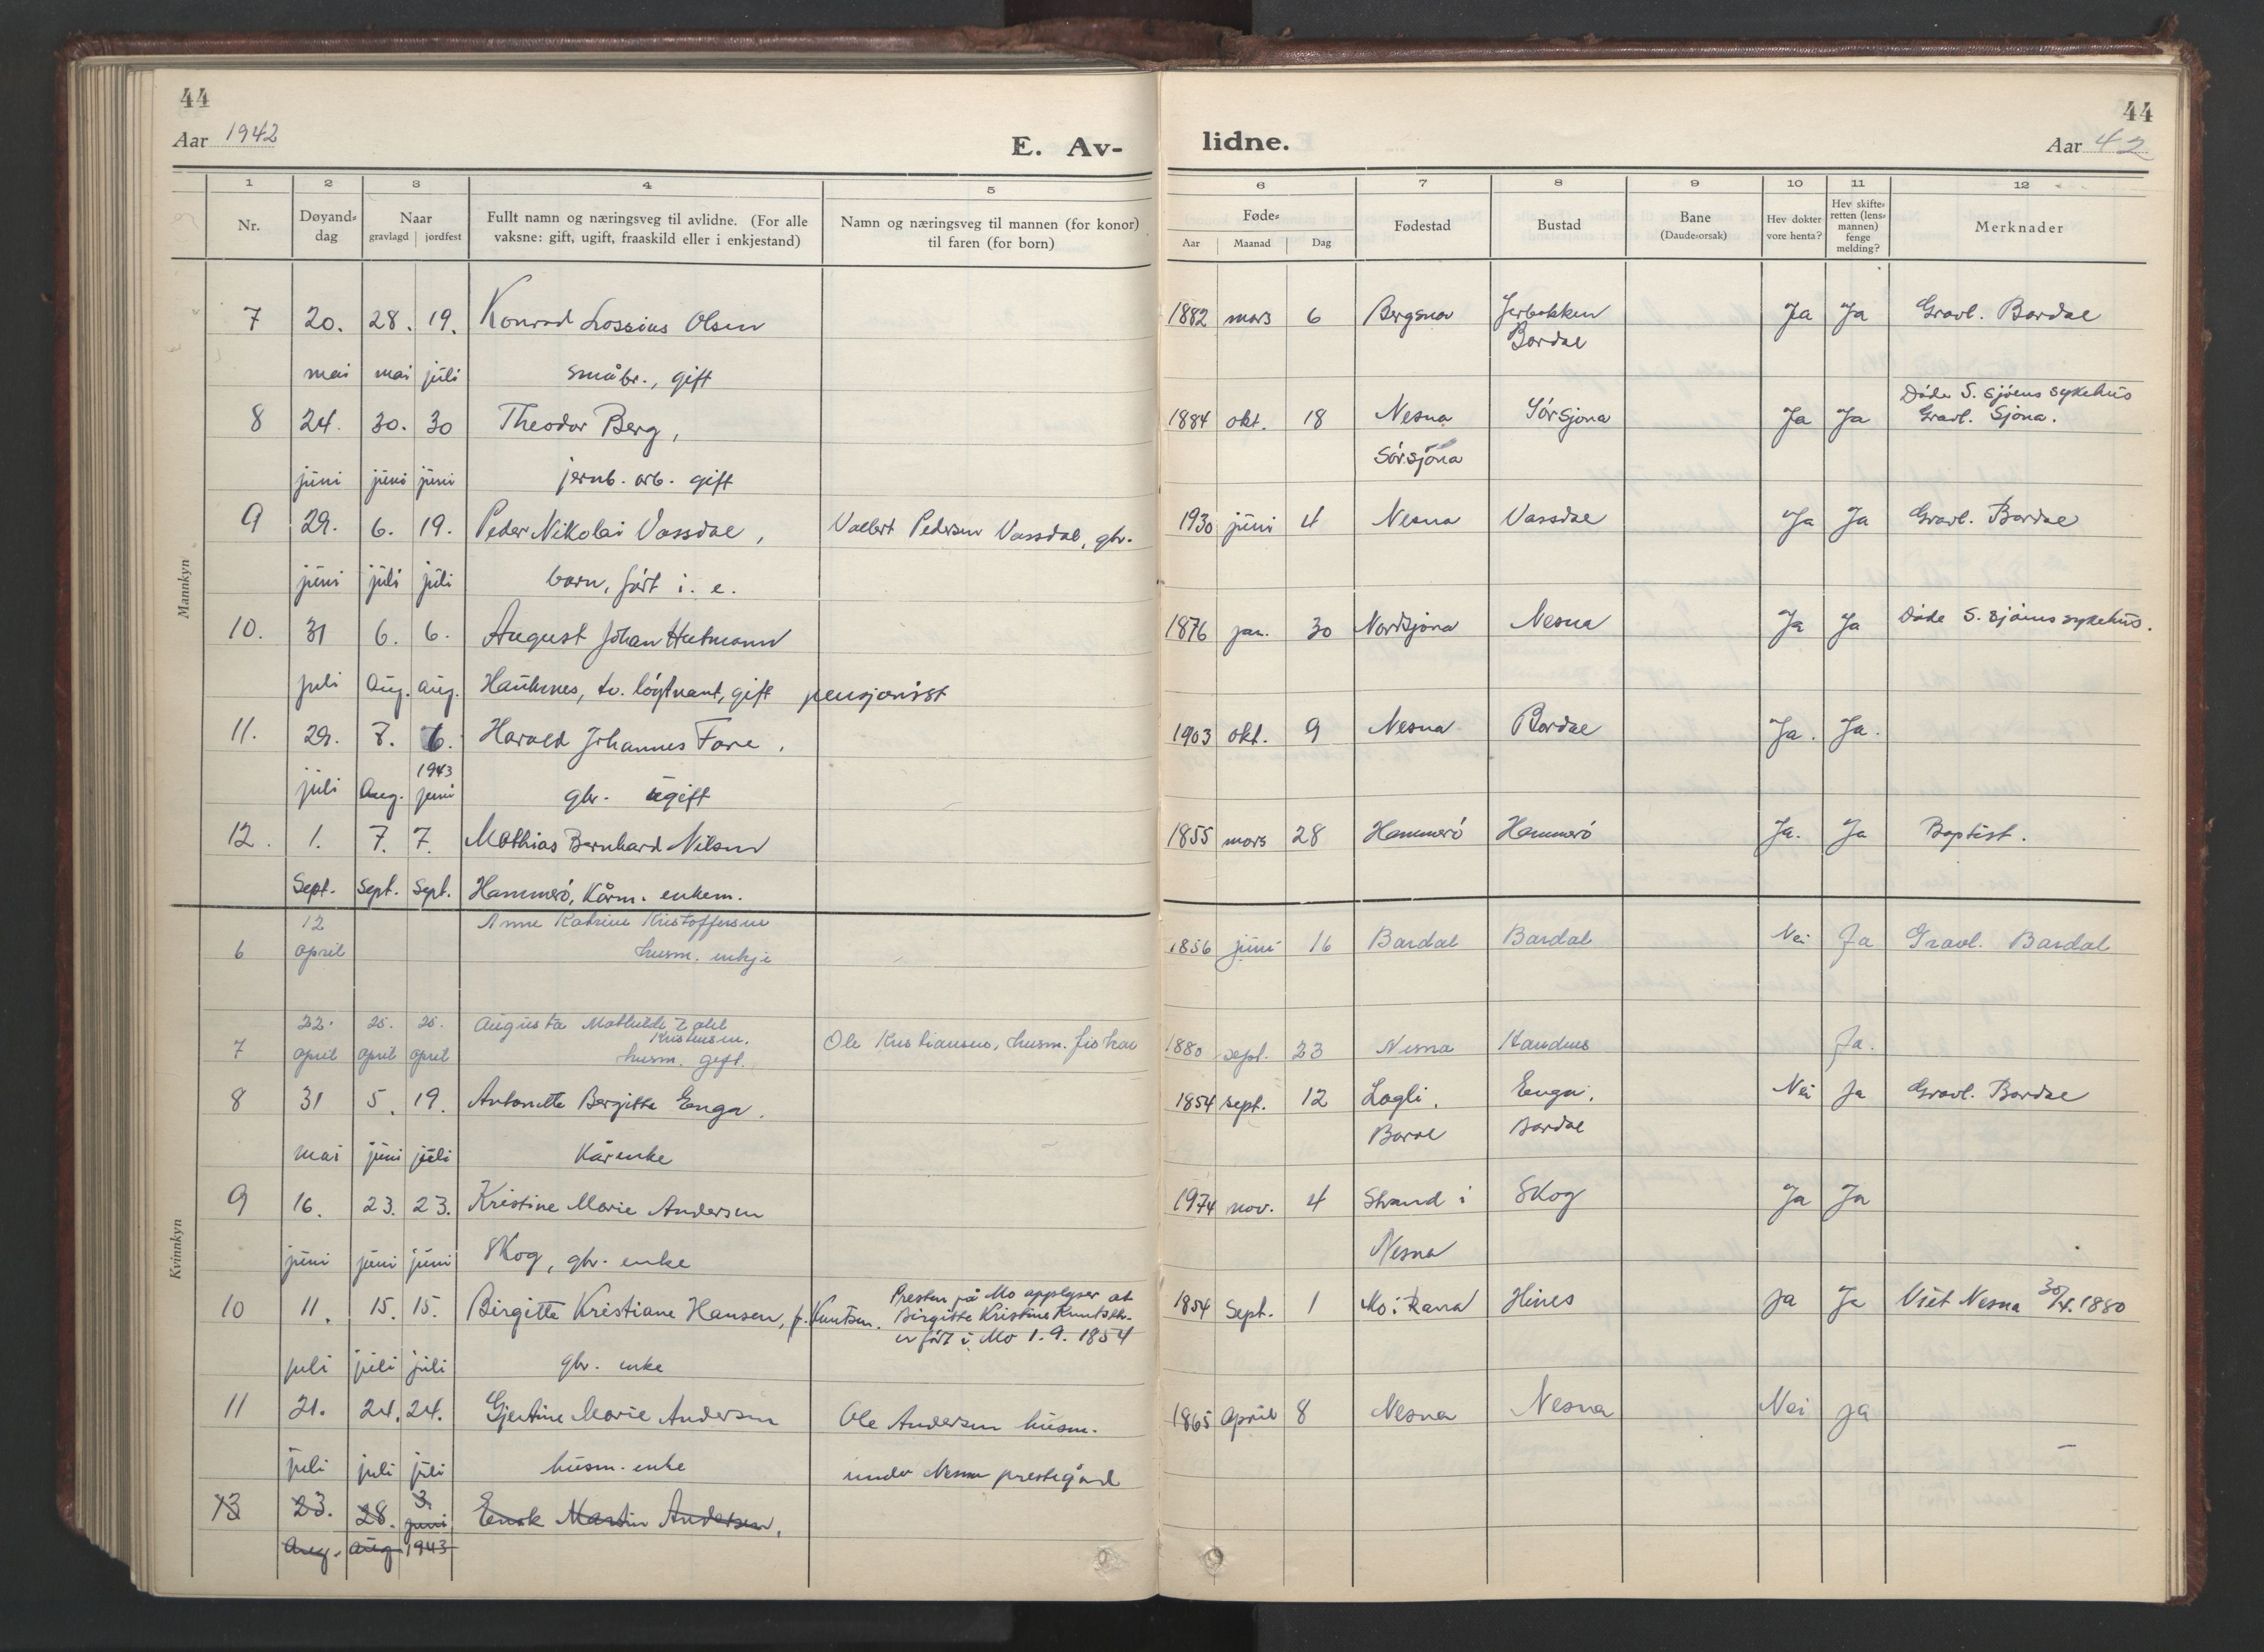 44
Aar 1942
E. Av-
1 2 3 4 5
Nr.
Døyand-
dag
Naar
gravlagd jordfest
Fullt namn og næringsveg til avlidne. (For alle
vaksne: gift, ugift, fraaskild eller i enkjestand)
Namn og næringsveg til mannen (for konor)
til faren (for born)
Mannkyn
7 20. 28. 19. Konrad Lossius Olsen
mai mai juli småbr., gift
8 24. 30. 30 Theodor Berg,
juni juni juni jernb. arb. gift
9 29. 6. 19. Peder Nikolai Vassdal, Valbert Pedersen Vassdal, gbr.
juni juli juli barn, født i. e.
10. 31 6. 6. August Johan Hutmann
juli Aug. aug. løytnant, gift pensjonist
11. 29. 7. 6. Harald Johannes Fore,
1943
juli Aug. juni gbr. ugift
12. 1. 7. 7. Mathias Bernhard Nilsen
Sept. Sept. Sept. Hammerö, kårm. enkem.
Kvinnkyn
12 Anne Katrine Kristoffersen
6 april husm. enkje
22. 25. 25. Augusta Mathilde Zahl
Kristiansen.
7 april april april husm. gift. Ole Kristiansen, husm. fisker
8 31 5. 19. Antonette Bergitte Enga.
mai juni juli Kårenke
9 16. 23. 23. Kristine Marie Andersen
juni juni juni Skog, gbr. enke
10 11. 15. 15. Birgitte Kristiane Hansen, f. Knutsen.
Presten på Mo opplyser at
Birgitte Kristine Knutsdtr.
er født i Mo 1.9.1854
juli juli juli gbr. enke
11 21. 24. 24. Gjertine Marie Andersen Ole Andersen husm.
juli juli juli husm. enke under Nesna prestegård
13 23. 28. 3. Martin Andersen,
juni
Aug. aug 1943
44
lidne.
Aar 42
6 7 8 9 10 11 12
Føde-
Aar Maanad Dag
Fødestad
Bustad
Bane
(Daude-orsak)
Hev dokter
vore henta?
Hev skifte-
retten (lens-
mannen)
fenge
melding?
Merknader
1882 mars 6 Bergsnov Ja Ja Gravl. Bardal
Bardal
Døde S. Sjøens sykehus
1884 okt. 18 Nesna Sörsjona Ja Ja Gravl. Sjona.
Sörsjona
1930 juni 4 Nesna Vassdal Ja Ja Gravl. Bardal
1876 jan. 30 Nordsjona Nesna Ja Ja Døde S. Sjøens sykehus.
1903 okt. 9 Nesna Bardal Ja. Ja.
1855 mars 28 Hammerö Hammerö Ja. Ja Baptist.
1856 juni 16 Bardal Bardal Nei Ja Gravl. Bardal
1880 sept. 23 Nesna Handnes Ja.
1854 sept. 12 Lagli. Enga. Nei Ja Gravl. Bardal
Bardal
1974 nov. 4 Strand i Skog Ja Ja
Nesna
1854 Sept. 1 Mo i Rana Hines Ja Ja Viet Nesna 30/X. 1880
1865 April 8 Nesna Nesna Nei Ja